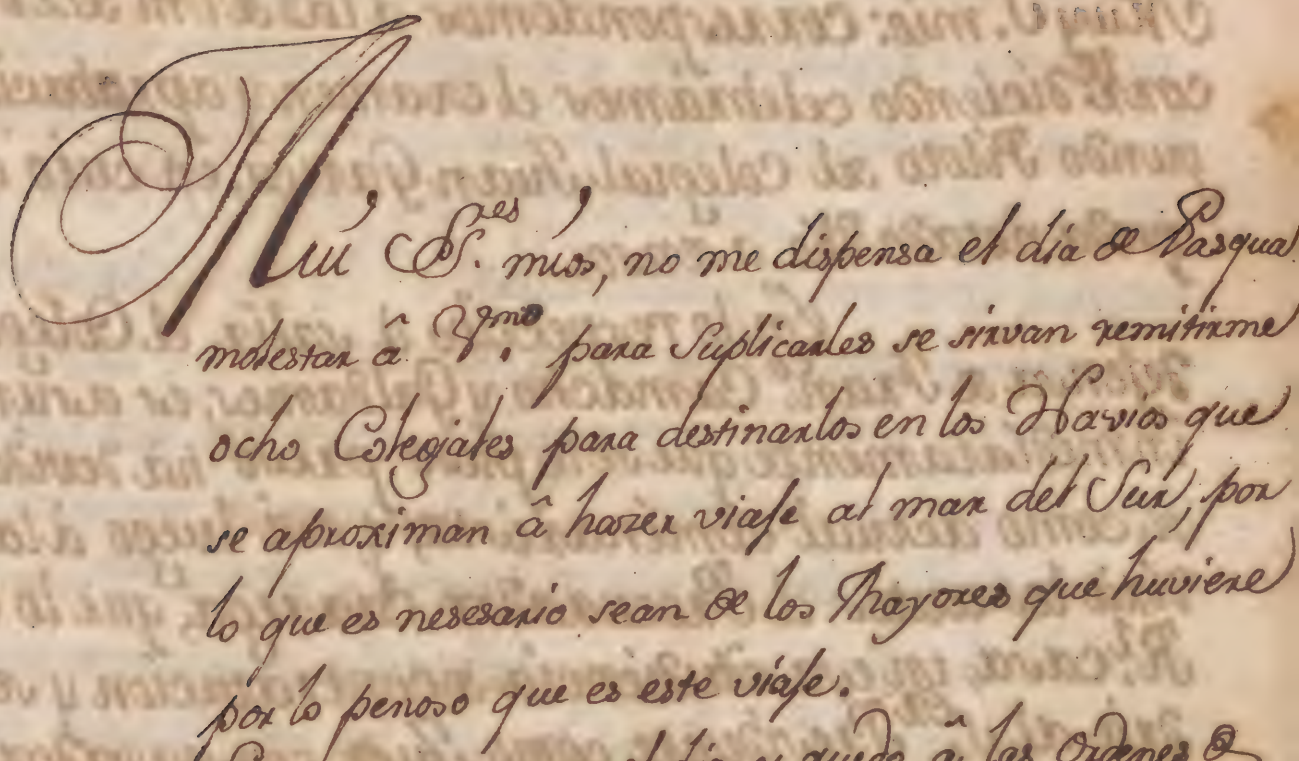 Mui S.res mios, no me dispensa el dia de Pasqua
molestar â V.mo para Suplicarles se sirvan remitirme
ocho Colegiales para destinarlos en los Navios que
se aproximan â hazer viaje al mar del Sur, por
lo que es nesesario sean de los Mayores que huviere
por lo penoso que es este viaje.
el dia y quedo â las Ordenes de